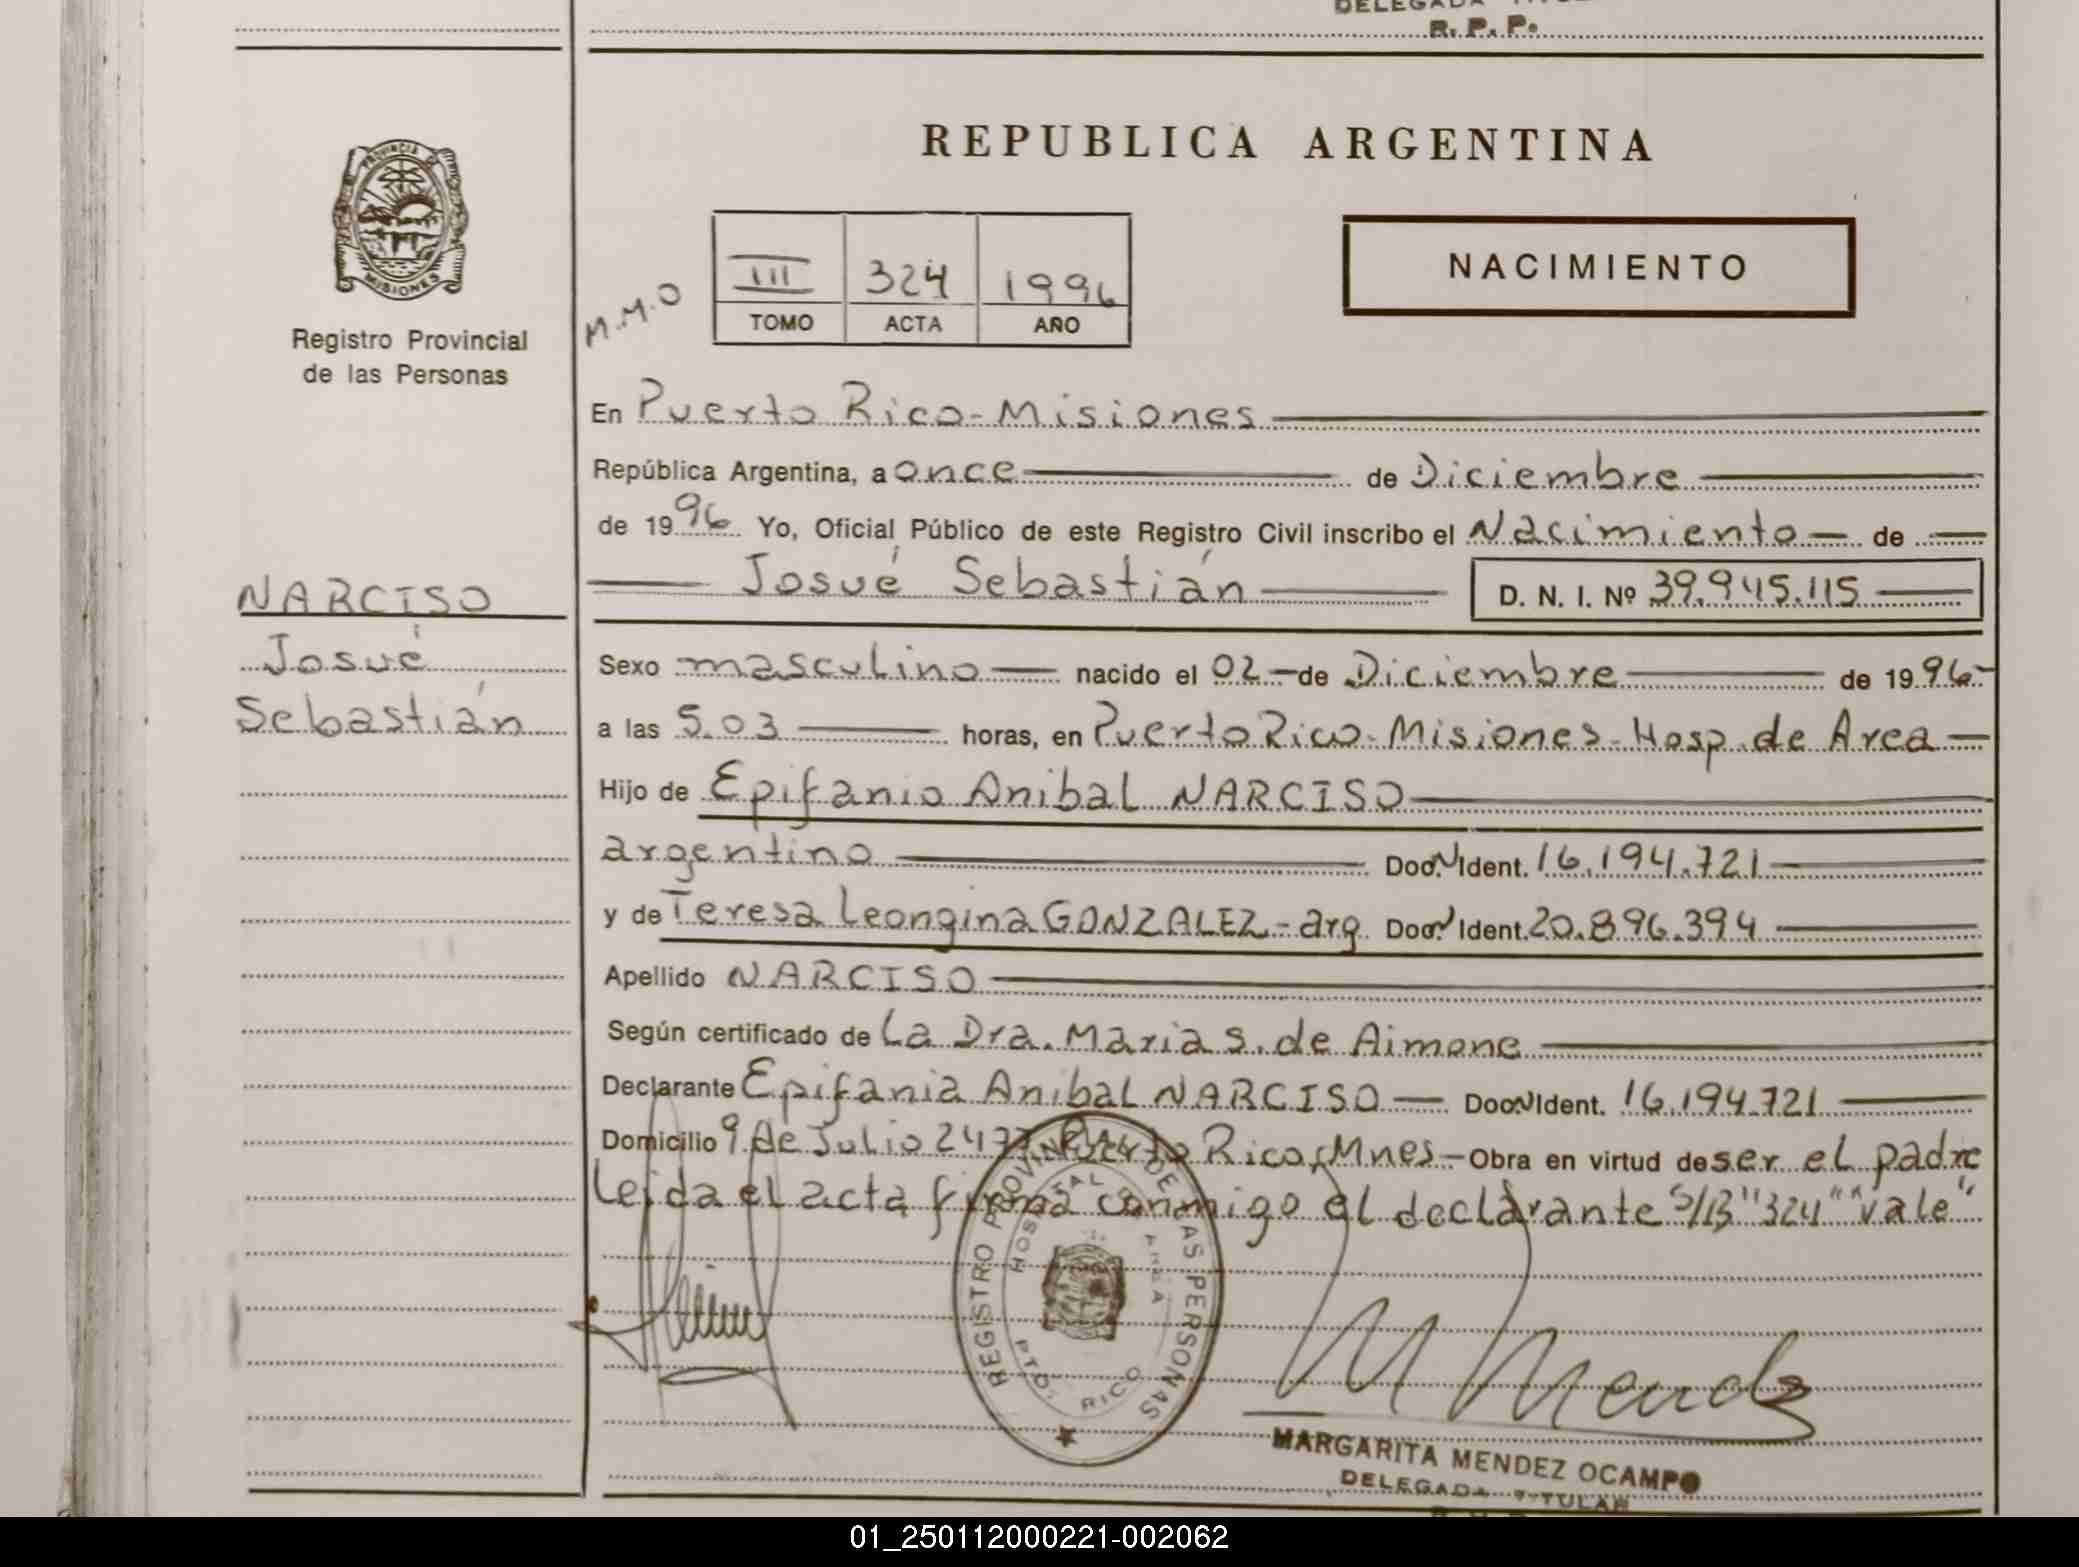 DELEGADA TITULAR
R. P. P.
PROVINCIA DE
MISIONES
Registro Provincial
de las Personas
REPUBLICA ARGENTINA
M.M.O
III 324 1996
TOMO ACTA AÑO
NACIMIENTO
En Puerto Rico-Misiones
República Argentina, a once de Diciembre
de 1996 Yo, Oficial Público de este Registro Civil inscribo el Nacimiento de
Josué Sebastián D. N. I. Nº 39.945.115
NARCISO
Josué
Sebastián
Sexo masculino nacido el 02 de Diciembre de 1996-
a las 5.03 horas, en Puerto Rico-Misiones-Hosp. de Area
Hijo de Epifanio Anibal NARCISO
argentino Doc. N Ident. 16.194.721
y de Teresa Leongina GONZALEZ-arg. Doc. N Ident. 20.896.394
Apellido NARCISO
Según certificado de La Dra. Maria S. de Aimone
Declarante Epifania Anibal NARCISO Doc. N Ident. 16.194.721
Domicilio 9 de Julio 2477 Puerto Rico, Mnes- Obra en virtud de ser el padre
Leida el acta firma conmigo el declarante S/B "324" "vale"
REGISTRO PROVINCIAL DE LAS PERSONAS
HOSPITAL AREA
PTO. RICO
M Mendez
MARGARITA MENDEZ OCAMPO
DELEGADA TITULAR
01_250112000221-002062